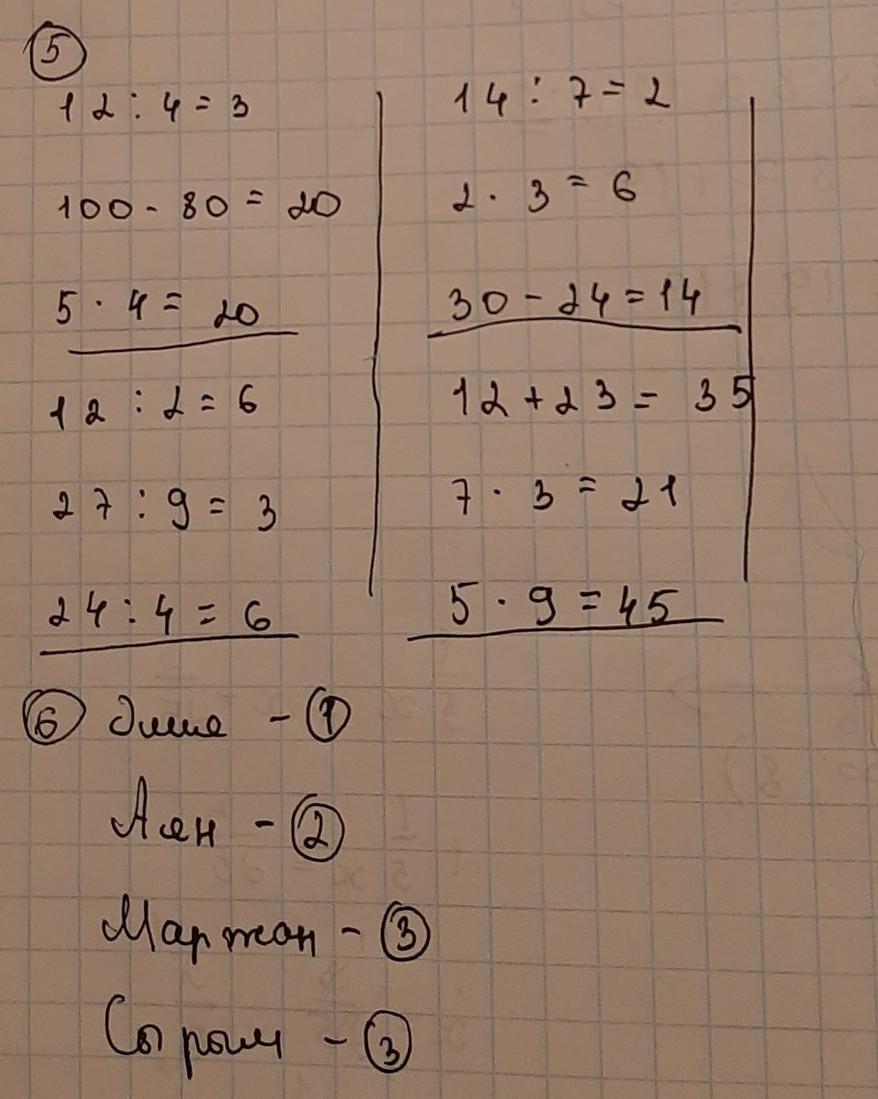 5
12 : 4 = 3
100 - 80 = 20
5 · 4 = 20
12 : 2 = 6
27 : 9 = 3
24 : 4 = 6
14 : 7 = 2
2 · 3 = 6
30 - 24 = 14
12 + 23 = 35
7 · 3 = 21
5 · 9 = 45
6 - 1
Аян - 2
Маржан - 3
Сырым - 3